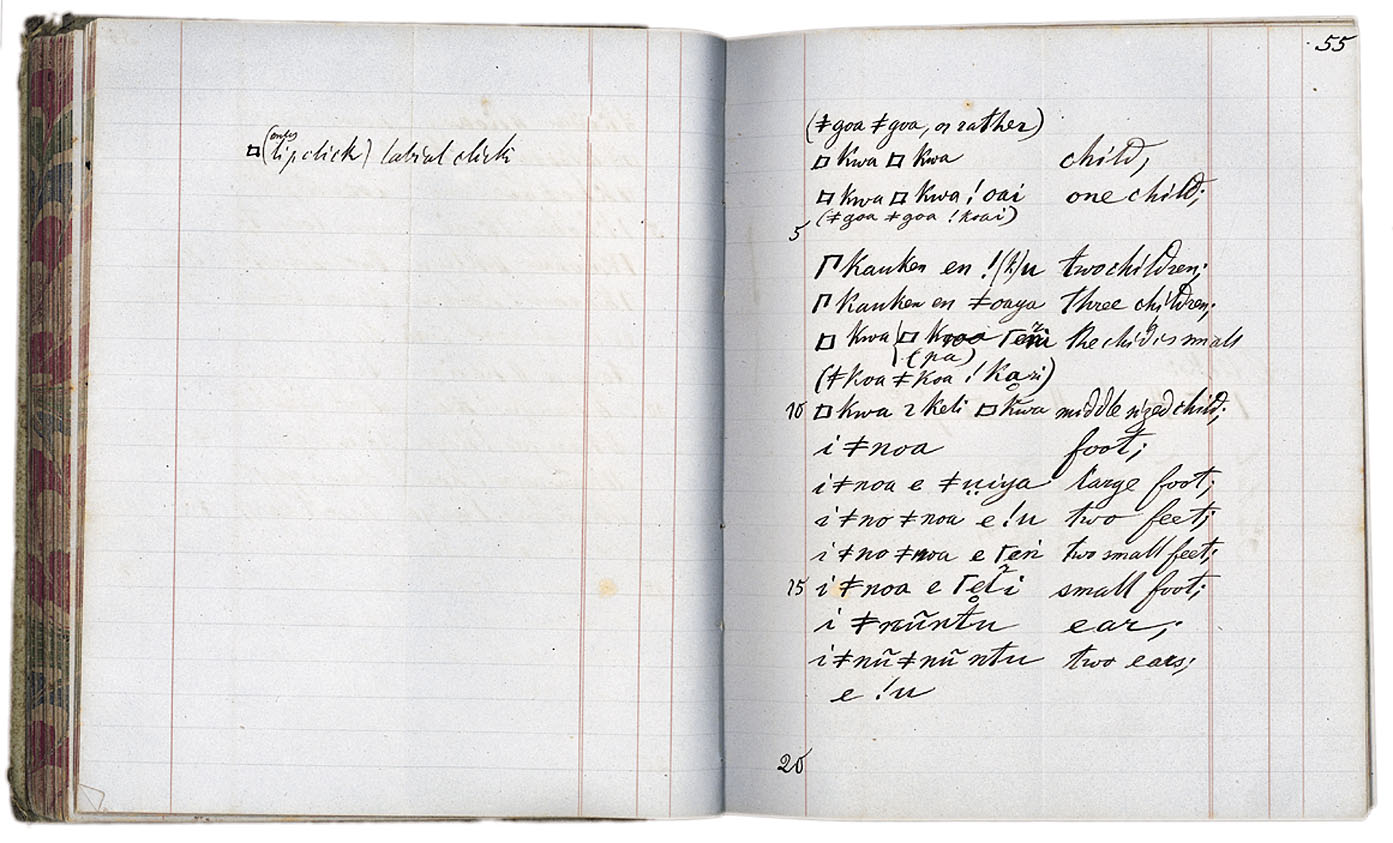 (only
□ (lip click) labial click
55
(ǂgoa ǂgoa, or rather)
□ kwa □ kwa child;
□ kwa □ kwa ! oai one child;
5 (ǂgoa ǂgoa ! koai)
Γ kauken en !(k)u two children;
Γ kauken en ǂoaya three children;
□ kwa □ the child is small
(pa)
(ǂkoa ǂkoa ! kazi)
10 □ kwa keti □ kwa middle sized child;
i ǂnoa foot;
i ǂnoa e ǂṳiya large foot;
i ǂno ǂnoa e !u two feet;
i ǂno ǂnoa e Γeń two small feet;
15 i ǂnoa e small foot;
i ǂnũntu ear;
i ǂnũ ǂnũ ntu two ears;
e !u
20